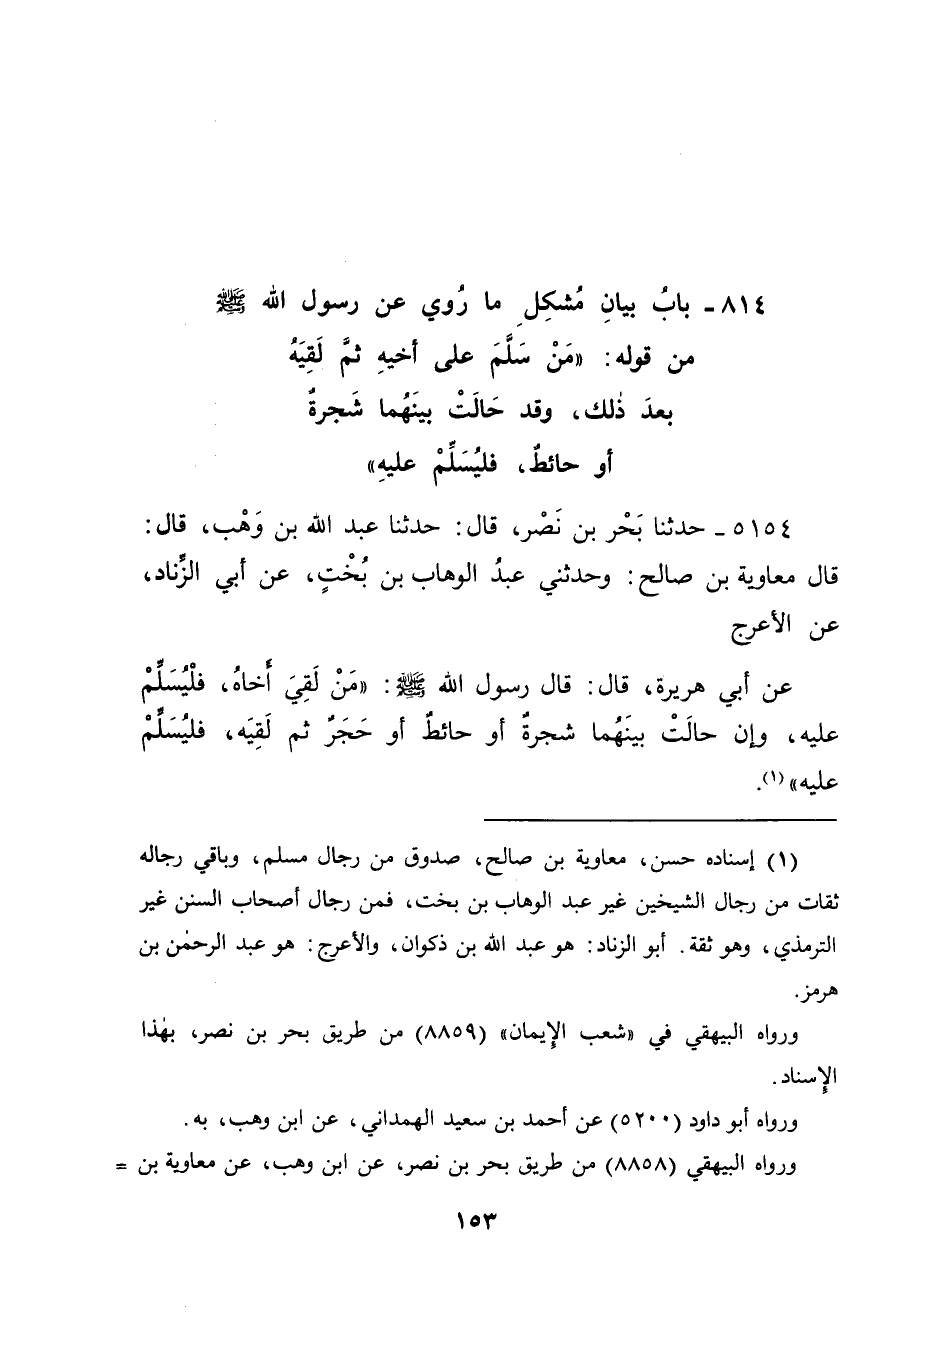 ٨١٤ ـ بابُ بيانِ مُشكِلِ ما رُوي عن رسول الله ﷺ
من قوله: «مَنْ سَلَّمَ على أخيهِ ثمَّ لَقِيَهُ
بعدَ ذٰلك، وقد حَالَتْ بينَهُما شَجرةٌ
أو حائطٌ، فليُسَلِّمْ عليهِ»
٥١٥٤ ـ حدثنا بَحْر بن نَصْر، قال: حدثنا عبد الله بن وَهْب، قال:
قال معاوية بن صالح: وحدثني عبدُ الوهاب بن بُخْتٍ، عن أبي الزِّناد،
عن الأعرج
عن أبي هريرة، قال: قال رسول الله ﷺ: «مَنْ لَقِيَ أَخاهُ، فلْيُسَلِّمْ
عليه، وإن حالَتْ بينَهُما شجرةٌ أو حائطٌ أو حَجَرٌ ثم لَقِيَه، فليُسَلِّمْ
عليه»(١).
(١) إسناده حسن، معاوية بن صالح، صدوق من رجال مسلم، وباقي رجاله
ثقات من رجال الشيخين غير عبد الوهاب بن بخت، فمن رجال أصحاب السنن غير
الترمذي، وهو ثقة. أبو الزناد: هو عبد الله بن ذكوان، والأعرج: هو عبد الرحمٰن بن
هرمز.
ورواه البيهقي في «شعب الإيمان» (٨٨٥٩) من طريق بحر بن نصر، بهٰذا
الإسناد.
ورواه أبو داود (٥٢٠٠) عن أحمد بن سعيد الهمداني، عن ابن وهب، به.
ورواه البيهقي (٨٨٥٨) من طريق بحر بن نصر، عن ابن وهب، عن معاوية بن =
١٥٣